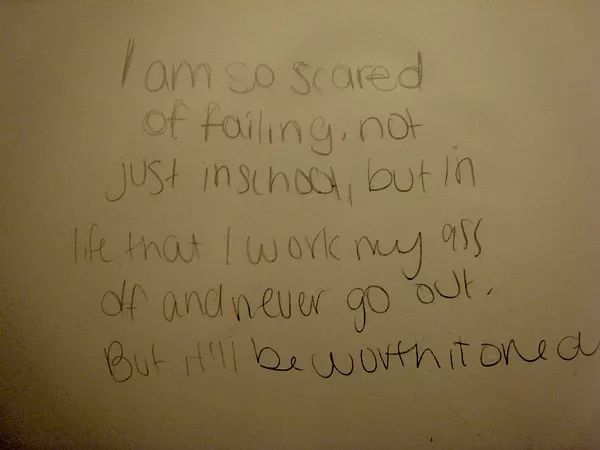 I am so scared
of failing, not
just in school, but in
life that I work my ass
off and never go out.
But it'll be worth it one d